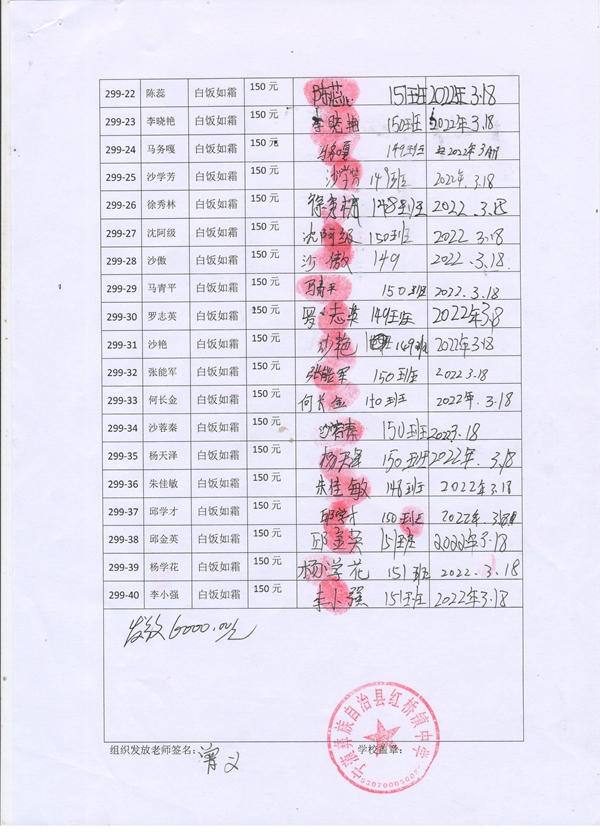 299-22 陈蕊 白饭如霜 150 元 陈蕊 151班班 2022年3.18
299-23 李晓艳 白饭如霜 150 元 李晓艳 150班班 2022年3.18
299-24 马务嘎 白饭如霜 150 元 马务嘎 149班班 2022年3月
299-25 沙学芳 白饭如霜 150 元 沙学芳 149班 2022年.3.18
299-26 徐秀林 白饭如霜 150 元 徐秀林 148班班 2022.3.18
299-27 沈阿级 白饭如霜 150 元 沈阿级 150班 2022.3.18
299-28 沙傲 白饭如霜 150 元 沙傲 149 2022.3.18.
299-29 马青平 白饭如霜 150 元 马青平 150班班 2022.3.18
299-30 罗志英 白饭如霜 150 元 罗志英 149班班 2022年3.8
299-31 沙艳 白饭如霜 150 元 沙艳 149班 2022年3.18
299-32 张能军 白饭如霜 150 元 张能军 150班班 2022.3.18
299-33 何长金 白饭如霜 150 元 何长金 150班 2022年.3.18
299-34 沙蓉秦 白饭如霜 150 元 沙蓉秦 150班班 3.18
299-35 杨天泽 白饭如霜 150 元 杨天泽 150班班 2022年.3.18
299-36 朱佳敏 白饭如霜 150 元 朱佳敏 148班 2022年3.18
299-37 邱学才 白饭如霜 150 元 邱学才 150班班 2022年.3.18
299-38 邱金英 白饭如霜 150 元 邱金英 151班 2022年3.18
299-39 杨学花 白饭如霜 150 元 杨学花 151班 2022.3.18
299-40 李小强 白饭如霜 150 元 李小强 151班班 2022年3.18
发放6000.00元
宁蒗彝族自治县红桥镇中学
组织发放老师签名： 学校盖章：